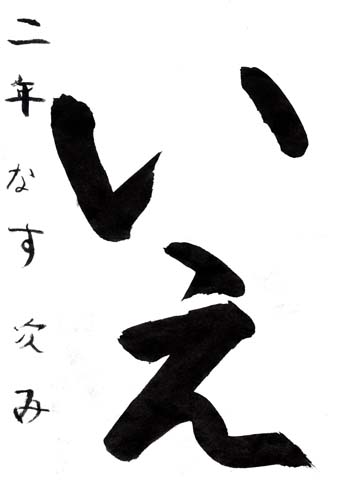 いえ
二年 なす 次み